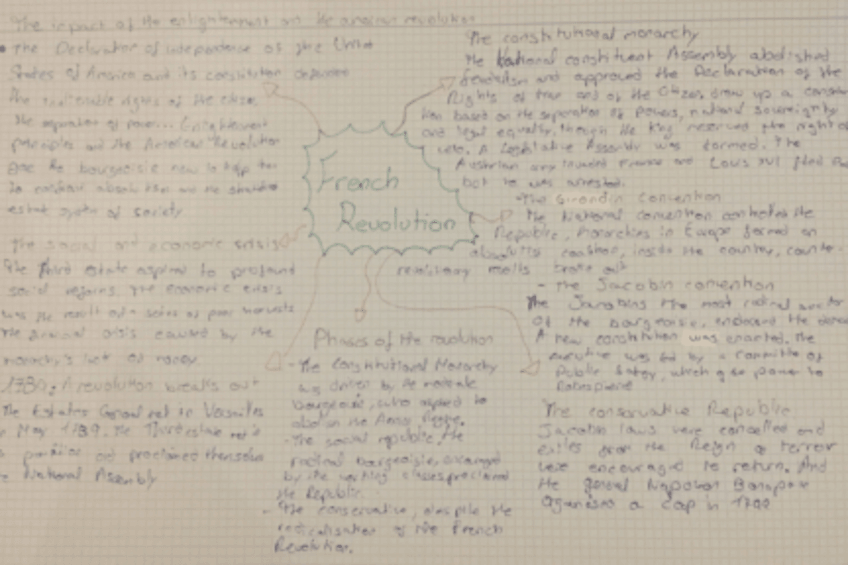 The impact of the enlightenment on the american revolution
• The Declaration of independence of the Unite
States of America and its constitution defended
the inalienable rights of the citizen
the separation of power... Enlightenment
principles and the American Revolution
gave the bourgeoisie
absolutism and the
estate system of society
The social and economic crisis
The Third estate aspired to profound
social regains. The economic crisis
was the result of a series of poor harvests
The financial crisis caused by the
monarchy's lack of money
1789: A revolution breaks out
The Estates General met in Versailles
May 1789. The Third estate met
and proclaimed themselves
National Assembly
French
Revolution
Phases of the revolution
- The constitutional Monarchy
was driven by the moderate
bourgeoisie, who agreed to
abolish the
- The social republic, the
radical bourgeoisie, encouraged
by the working classes proclaimed
the Republic.
- The conservative, despite the
radicalisation of the French
Revolution.
The constitutional monarchy
The National constituent Assembly abolished
feudalism and approved the Declaration of the
Rights of man and of the Citizen, drew up a constitu
tion based on the separation of powers, national sovereignty
and legal equality, though the king reserved the right of
veto. A Legislative Assembly was formed. The
Austrian army invaded France and Louis XVI fled
but he was arrested.
- The Girondin Convention
The National convention controlled the
Republic, Monarchies in Europe formed an
absolutist coalition, inside the country, counter-
revolutionary revolts broke out
- The Jacobin convention
The Jacobins the most radical sector
of the bourgeoisie,
A new constitution was enacted. The
executive was led by a committee of
Public Safety, which gave power to
Robespierre
The conservative Republic
Jacobin laws were cancelled and
exiles from the Reign of terror
were encouraged to return. And
the general Napoleon Bonaparte
organised a coup in 1799